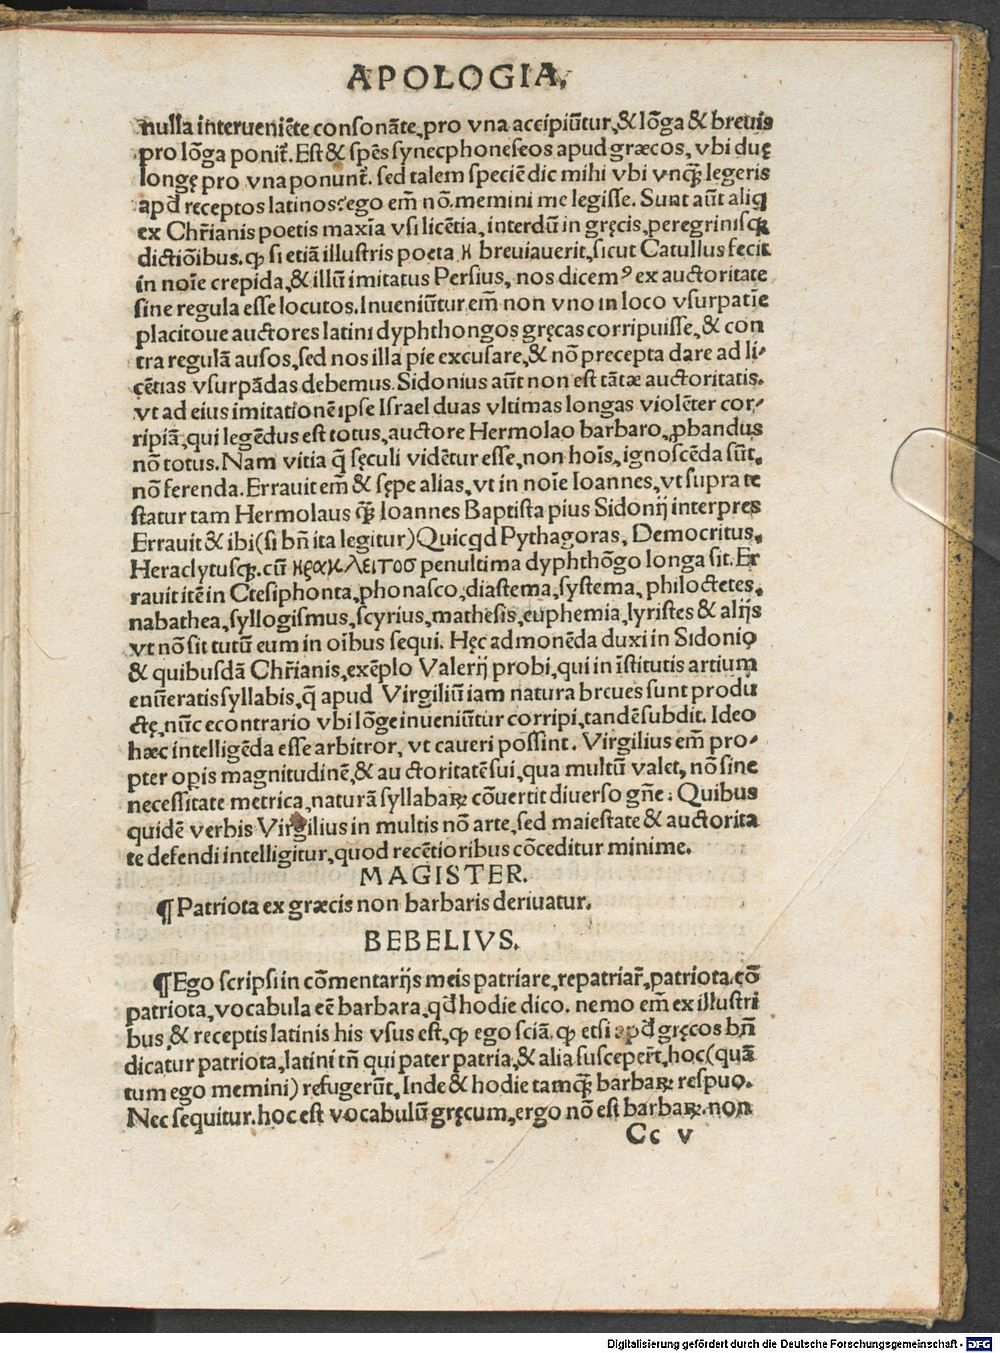 APOLOGIA.
nulla interueniēte consonāte, pro vna accipiūtur, & lōga & breuis
pro lōga ponit̄. Est & spēs synecphoneseos apud græcos, vbi duę
longę pro vna ponunt̄. sed talem speciē dic mihi vbi vnq̄ꝫ legeris
apđ receptos latinos? ego em̄ nō. memini me legisse. Sunt aūt aliq̄
ex Chr̄ianis poetis maxīa vsi licētia, interdū in gręcis, peregrinisqꝫ
dictiōibus. ꝙ si etiā illustris poeta η breuiauerit, sicut Catullus fecit
in noīe crepida, & illū imitatus Persius, nos dicemꝰ ex auctoritate
sine regula esse locutos. Inueniūtur em̄ non vno in loco vsurpatīe
placitoue auctores latini dyphthongos gręcas corripuisse, & con
tra regulā ausos, sed nos illa pie excusare, & nō precepta dare ad li⸗
cētias vsurpādas debemus. Sidonius aūt non est tātæ auctoritatis.
vt ad eius imitationē ipse Israel duas vltimas longas violēter cor⸗
ripiā, qui legēdus est totus, auctore Hermolao barbaro, ꝓbandus
nō totus. Nam vitia q̄ sęculi vidētur esse, non hoīs, ignoscēda sūt.
nō ferenda. Errauit em̄ & sępe alias, vt in noīe Ioannes, vt supra te
statur tam Hermolaus q̄ꝫ Ioannes Baptista pius Sidonij interpres
Errauit & ibi (si bn̄ ita legitur) Quicq̄d Pythagoras, Democritus,
Heraclytusqꝫ. cū ηρακλειτοσ penultima dyphthōgo longa sit. Er
rauit itē in Ctesiphonta, phonasco, diastema, systema, philoctetes,
nabathea, syllogismus, scyrius, mathesis, euphemia, lyristes & alijs
vt nō sit tutū eum in oībus sequi. Hęc admonēda duxi in Sidonio
& quibusdā Chr̄ianis, exēplo Valerij probi, qui in īstitutis artium
enūeratis syllabis, q̄ apud Virgiliū iam natura breues sunt produ
ctę, nūc econtrario vbi lōge inueniūtur corripi, tandē subdit. Ideo
hæc intelligēda esse arbitror, vt caueri possint. Virgilius em̄ pro⸗
pter opis magnitudinē, & auctoritatē sui, qua multū valet, nō sine
necessitate metrica, naturā syllabaꝝ cōuertit diuerso gn̄e: Quibus
quidē verbis Virgilius in multis nō arte, sed maiestate & auctorita
te defendi intelligitur, quod recētioribus cōceditur minime.
MAGISTER.
¶ Patriota ex græcis non barbaris deriuatur.
BEBELIVS.
¶ Ego scripsi in cōmentarijs meis patriare, repatriar̄, patriota, cō
patriota, vocabula eē barbara, qđ hodie dico. nemo em̄ ex illustri
bus, & receptis latinis his vsus est, ꝙ ego sciā. ꝙ etsi apđ gręcos bn̄
dicatur patriota, latini tn̄ qui pater patria, & alia susceper̄t, hoc (quā
tum ego memini) refugerūt, Inde & hodie tamq̄ꝫ barbaꝝ respuo.
Nec sequitur. hoc est vocabulū gręcum, ergo nō est barbaꝝ. non
Cc v
Digitalisierung gefördert durch die Deutsche Forschungsgemeinschaft - DFG